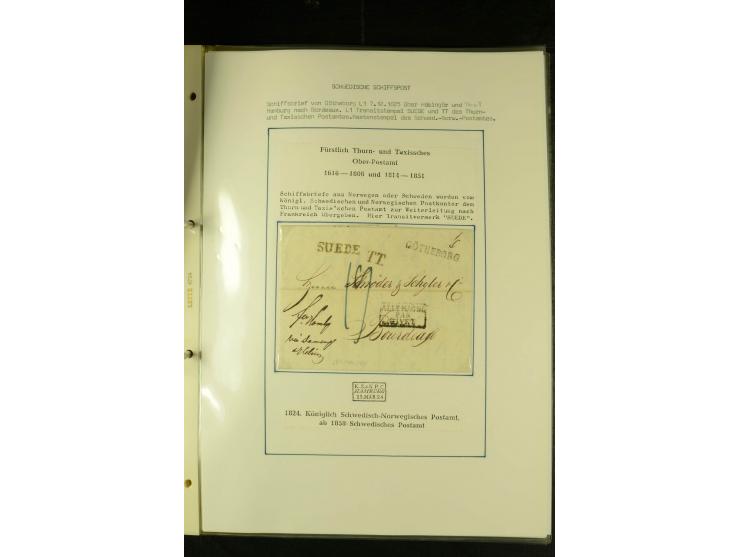 SCHWEDISCHE SCHIFFSPOST
Schiffsbrief von Göteborg L1 7.12.1825 über Helsingör und
Hamburg nach Bordeaux. L1 Transitstempel SUEDE und TT des Thurn-
und Taxisschen Postamtes. Kastenstempel des Schwed.-Norw.-Postamtes.
Fürstlich Thurn- und Taxissches
Ober-Postamt
1616—1806 und 1814—1851
Schiffsbriefe aus Norwegen oder Schweden wurden vom
Königl. Schwedischen und Norwegischen Postkontor dem
Thurn und Taxis'schen Postamt zur Weiterleitung nach
Frankreich übergeben. Hier Transitvermerk "SUEDE".
SUEDE TT
GÖTHEBORG
Schröder & Schyler & C
19
ALLEMAGNE
PAR
GIVET
Bourdeaux
K.S.&N.P.C.
HAMBURG
23 MAR 24
1824. Königlich Schwedisch-Norwegisches Postamt,
ab 1858 Schwedisches Postamt